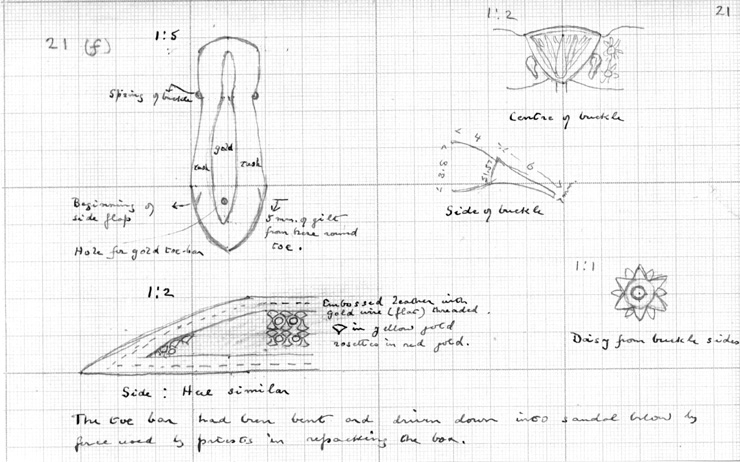 21
21 (f)
1:5
Spring of buckle
gold
rush
rush
Beginning of
side flap
Hole for gold toe-bar
5 mm. of gilt
from here round
toe.
1:2
Centre of buckle
4
6
3.8
Side of buckle
1:1
Daisy from buckle sides
1:2
Embossed leather with
gold wire (flat) threaded.
in yellow gold
rosettes in red gold.
Side: Heel similar
The toe bar had been bent and driven down into sandal below by
force used by priests in repacking the box.